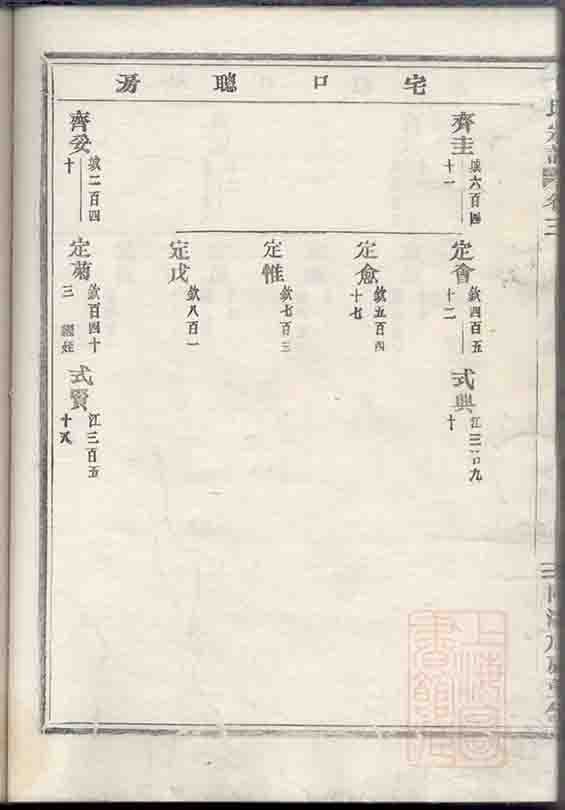 宅口聰房
齊圭
城六百四
十一
定會
欽四百五
十二
式興
江三百九
十
定愈
欽五百四
十七
定惟
欽七百三
定戊
欽八百一
齊妥
城二百四
十
定菊
欽百四十
三 繼姪
式賢
江三百五
十八
上海圖書館藏